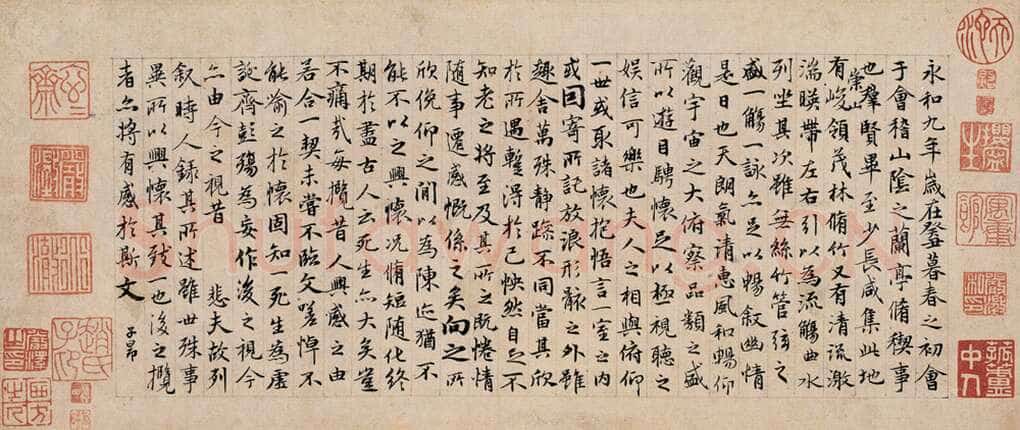 永和九年歲在癸丑暮春之初會
于會稽山陰之蘭亭脩稧事
也羣賢畢至少長咸集此地
有崇峻領茂林脩竹又有清流激
湍暎帶左右引以為流觴曲水
列坐其次雖無絲竹管弦之
盛一觴一詠亦足以暢叙幽情
是日也天朗氣清惠風和暢仰
觀宇宙之大俯察品類之盛
所以遊目騁懷足以極視聽之
娱信可樂也夫人之相與俯仰
一世或取諸懷抱悟言一室之内
或因寄所託放浪形骸之外雖
趣舍萬殊静躁不同當其欣
於所遇蹔得於己怏然自足不
知老之將至及其所之既惓情
隨事遷感慨係之矣向之所
欣俛仰之閒以為陳迹猶不
能不以之興懷况脩短隨化終
期於盡古人云死生亦大矣豈
不痛哉每攬昔人興感之由
若合一契未嘗不臨文嗟悼不
能喻之於懷固知一死生為虛
誕齊彭殤為妄作後之視今
亦由今之視昔 悲夫故列
叙時人錄其所述雖世殊事
異所以興懷其致一也後之攬
者亦將有感於斯文
子昂